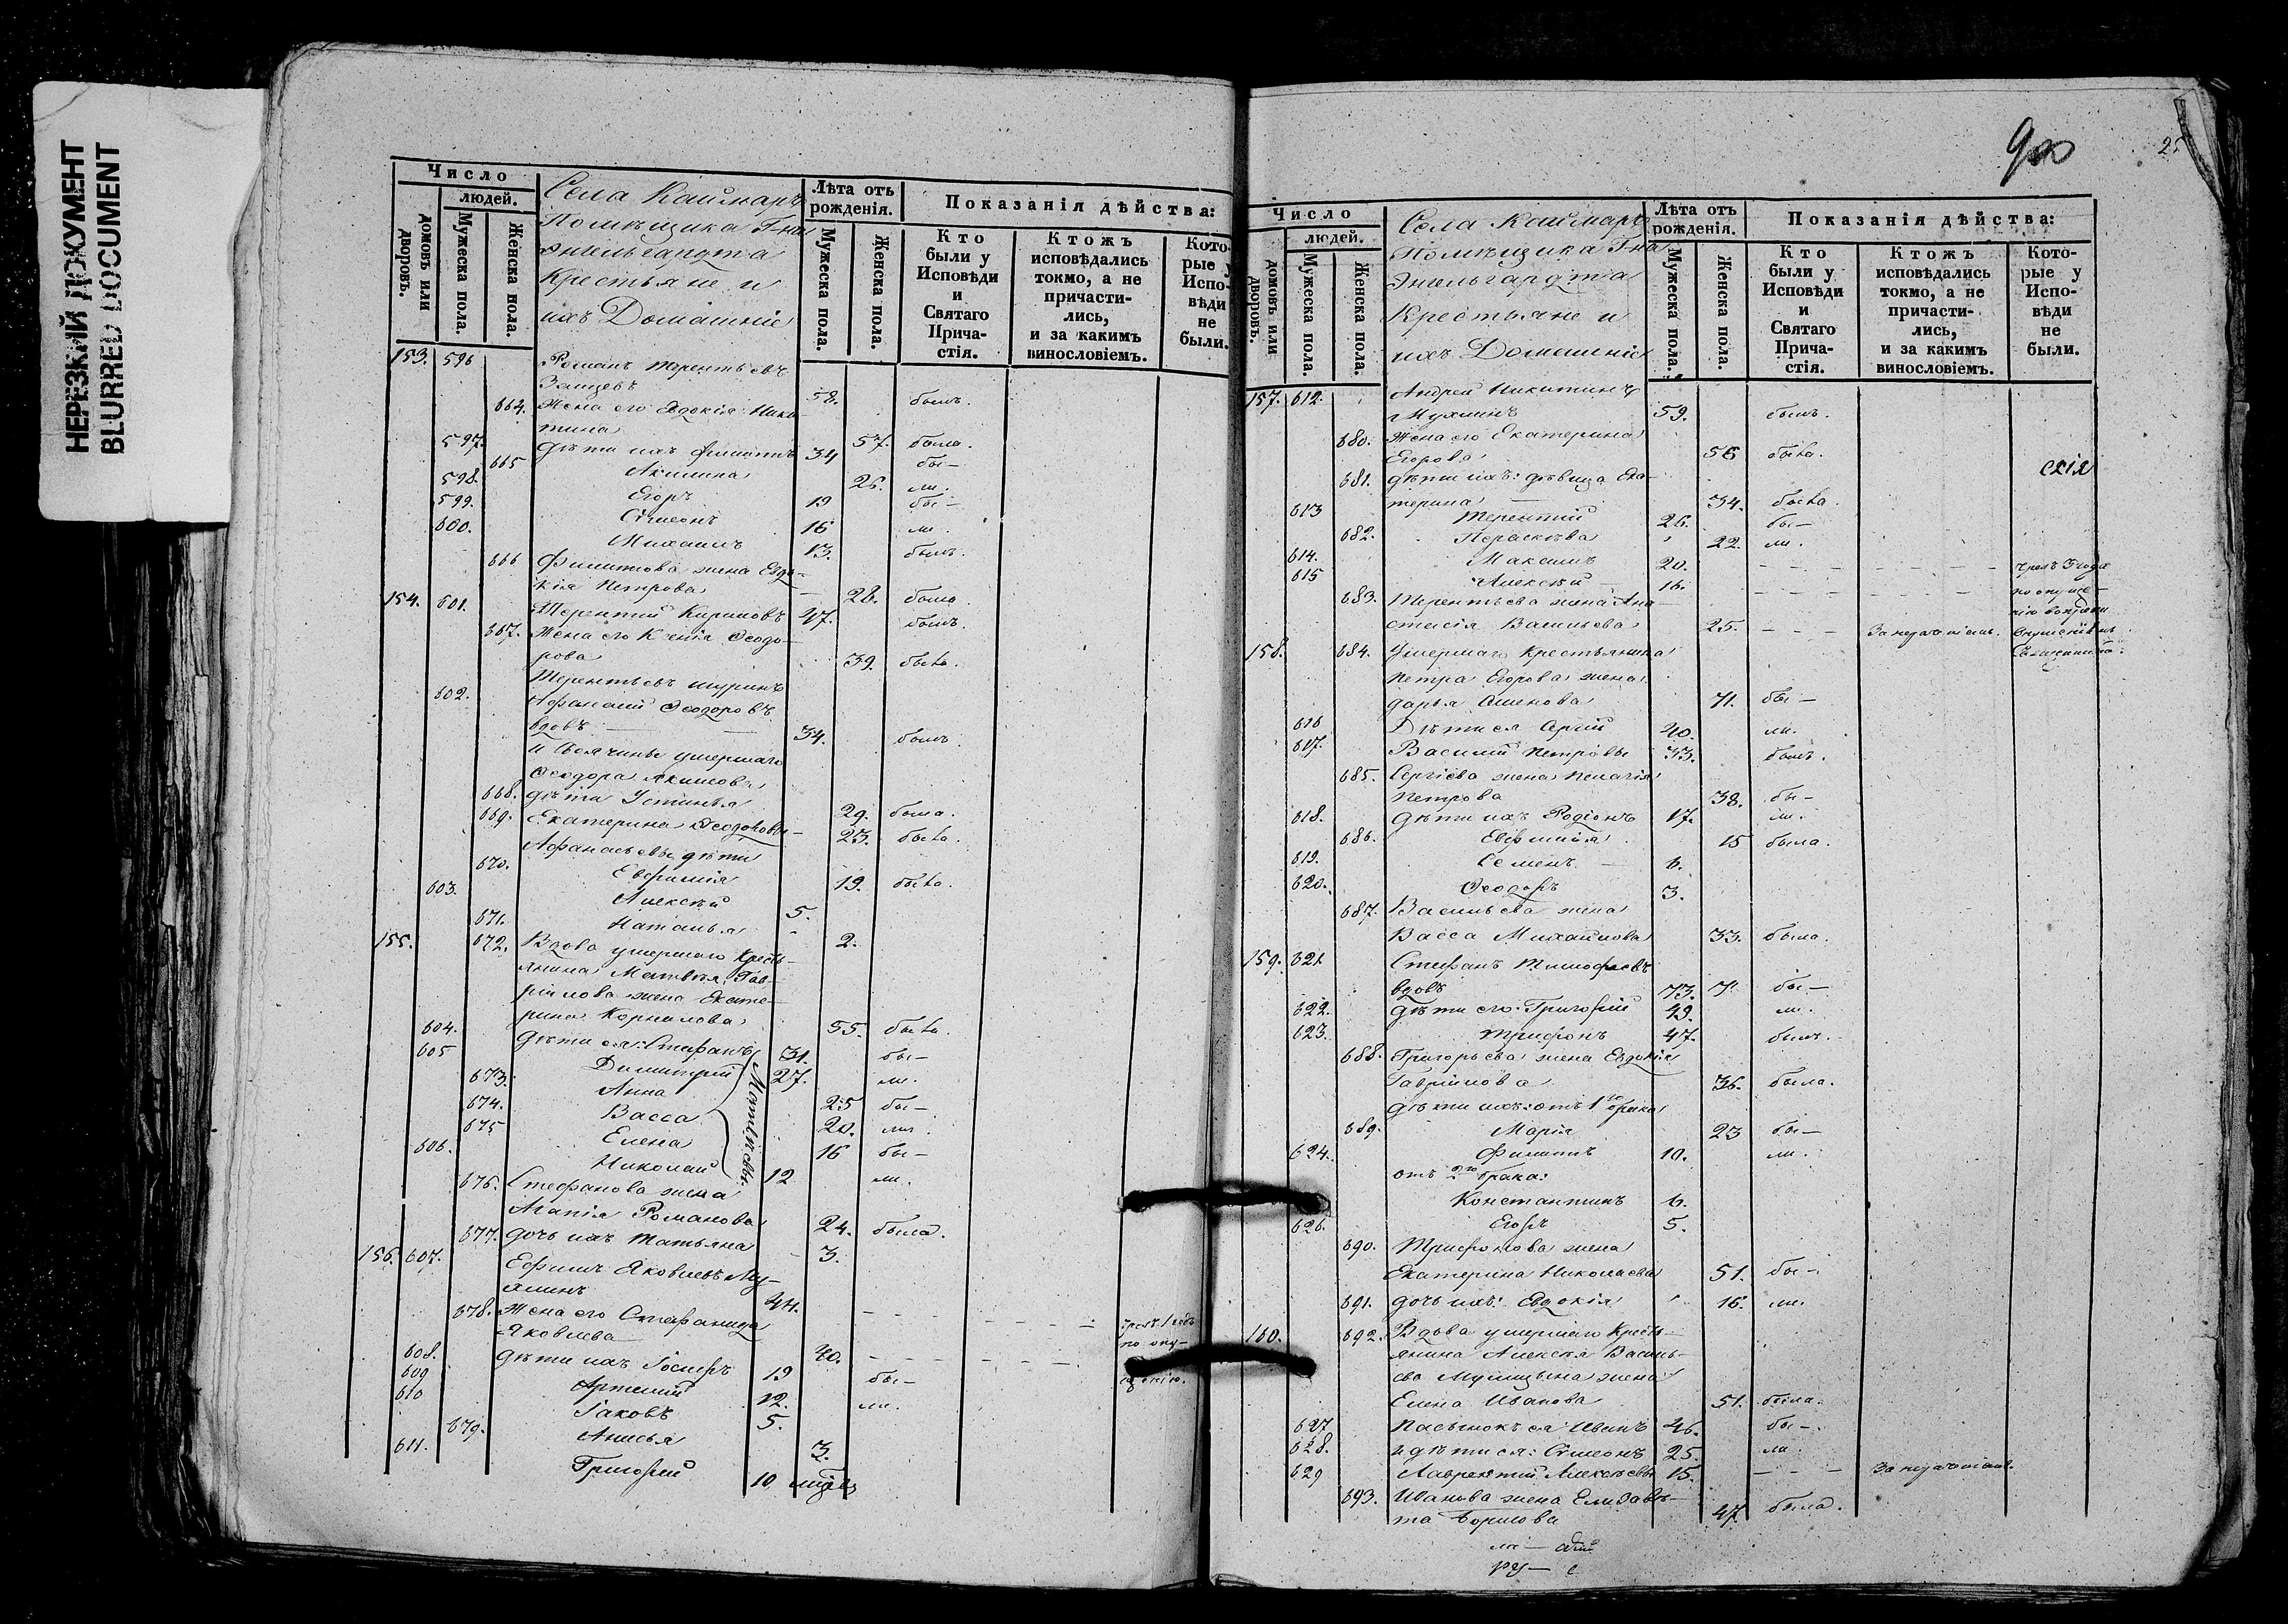 НЕРЕЗКИЙ ДОКУМЕНТ
BLURRED DOCUMENT
Число
людей.
домовъ или дворовъ.
Мужеска пола.
Женска пола.
Села Каймаръ
Помѣщика Г-на
Энгельгардта
Крестьяне и
ихъ Домашніе
Лѣта отъ рожденія.
Мужеска пола.
Женска пола.
Показанія дѣйства:
Кто были у Исповѣди и Святаго Прича-стія.
Ктожъ исповѣдались токмо, а не причасти-лись, и за какимъ винословіемъ.
Кото-рые у Испо-вѣди не были.
153. 596 Романъ Терентьевъ
Заицевъ 58. былъ.
664. Жена его Евдокія Ники-
тина 57. была.
597. дѣти ихъ Филиппъ 34 бы—
665 Акилина 26. ли.
598. Егоръ 19 бы—
599. Сѵмеонъ 16 ли.
600. Михаилъ 13. былъ.
666 Филиппова жена Евдо-
кія Петрова 28. была
154. 601. Терентій Кириловъ 47. былъ.
667. Жена его Ксенія Ѳеодо-
рова 39. была.
Терентьевъ шуринъ
602. Афанасій Ѳеодоровъ
вдовъ 34. былъ.
умершаго
Ѳеодора Акимова
668. дѣти Устинья 29. была.
669. Екатерина Ѳеодоровы 23. была.
Афанасьевы дѣти
670. Евфимія 19. была.
603. Алексѣй 5.
671. Наталья 2.
155. 672. Вдова умершаго Кресть-
янина Матвѣя Гав-
рилова жена Екате-
рина Корнилова 55. была.
604. дѣти ея: Стефанъ 31. бы—
605 Димитрій 27. ли.
673. Анна 25 бы—
674. Васса 20. ли.
675 Елена 16 бы—
606. Николай 12 ли.
Матвѣевы.
676. Стефанова жена
Агапія Романова 24. была.
677. дочь ихъ Татьяна 3.
156. 607. Ефимъ Яковлевъ Му-
хинъ 44. – – – –
678. Жена его Стефанида
Яковлева 40. – – – –
608. дѣти ихъ Іосифъ 19 бы—
609 Артемій 12. ли.
610 Іаковъ 5.
679. Анисья 3.
611. Григорій 10 мѣсяц
900
25
Число
людей.
домовъ или дворовъ.
Мужеска пола.
Женска пола.
Села Каймаръ
Помѣщика Г-на
Энгельгардта
Крестьяне и
ихъ Домашніе
Лѣта отъ рожденія.
Мужеска пола.
Женска пола.
Показанія дѣйства:
Кто были у Исповѣди и Святаго Прича-стія.
Ктожъ исповѣдались токмо, а не причасти-лись, и за какимъ винословіемъ.
Кото-рые у Испо-вѣди не были.
157. 612. Андрей Никитинъ
Мухинъ 59. былъ.
680. Жена его Екатерина
Егорова 56 была.
681. дѣти ихъ: дѣвица Ека-
терина 34. была.
613 Терентій 26. бы—
682. Параскева 22. ли.
614. Максимъ 20. – – – –
615 Алексѣй 16. – – – –
683. Терентьева жена Ана-
стасія Васильева 25. – – –
158. 684. Умершаго Крестьянина
Петра Егорова жена
Дарья Семенова 71. бы—
616 Дѣти ея Сергій 40. ли.
617. Василій Петровы 33. былъ.
685. Сергіева жена Пелагія
Петрова 38. бы—
618. дѣти ихъ Родіонъ 17. ли.
686. Евфимія 15 была.
619. Семенъ 6.
620. Ѳеодоръ 3.
687. Васильева жена
Васса Михайлова 33. была.
159. 621. Стефанъ Тимофеевъ
вдовъ 73. бы—
622. дѣти его: Григорій 49. ли.
623. Трифонъ 47. былъ.
688. Григорьева жена Евдокія
Гаврилова 36. была.
дѣти ихъ: отъ 1го брака
689. Марія 23 бы—
624. Филиппъ 10. ли.
отъ 2го брака:
Константинъ 6.
626. Егоръ 5.
690. Трифонова жена
Екатерина Николаева 51. бы—
691. дочь ихъ: Евдокія 16. ли.
160. 692. Вдова умершаго Кресть-
янина Алексѣя Василь-
ева жена
Елена Иванова 51. была.
627 Пасынокъ ея Иванъ 46. бы—
628. и дѣти ея: Сѵмеонъ 25. ли.
629 Лаврентій Алексѣевы 15. – – –
693. Иванова жена Елизаве-
та Борисова 47. была.